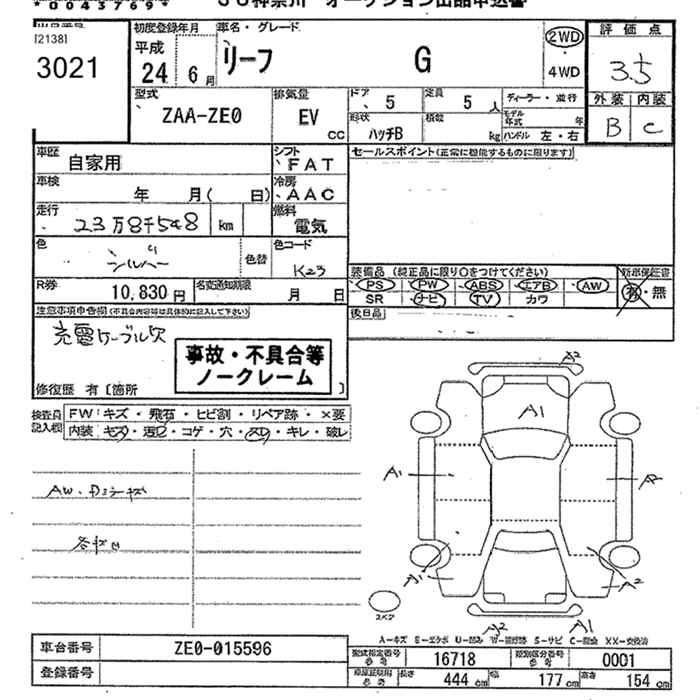 *00437699*
[2138]
3021
初度登録年月
平成
24 年 6 月
車名・グレード
リーフ G
2WD
4WD
評価点
3.5
外装 内装
B C
型式
ZAA-ZE0
排気量
EV
CC
ドア
5
定員
5 人
形状
ハッチB
積載
kg
ディーラー・並行
モデル年式 年
ハンドル 左・右
車歴
自家用
シフト
FAT
車検
年 月( 日)
冷房
AAC
走行
23万8千548 km
燃料
電気
色
シルバー
色替
色コード
K23
R券
10,830 円
名変通知期限
月 日
セールスポイント(正常に機能するものに限ります)
装備品 (純正品に限り○をつけてください)
PS PW ABS エアB AW
SR ナビ TV カワ
新車保証書
有・無
後日品
注意事項申告欄(不具合内容等は具体的に記入して下さい)
充電ケーブル欠
事故・不具合等
ノークレーム
修復歴 有 [箇所 ]
検査員記入欄
FW:キズ・飛石・ヒビ割・リペア跡・×要
内装:キズ・汚レ・コゲ・穴・スレ・キレ・破レ
A2
A1
A1
A1
A2
A2
A1
スペア
A-キズ E-エクボ U-凹み S-サビ XX-交換済
車台番号
ZE0-015596
登録番号
型式指定番号
参考
16718
類別区分番号
参考
0001
長さ
444 cm
幅
177 cm
高さ
154 cm